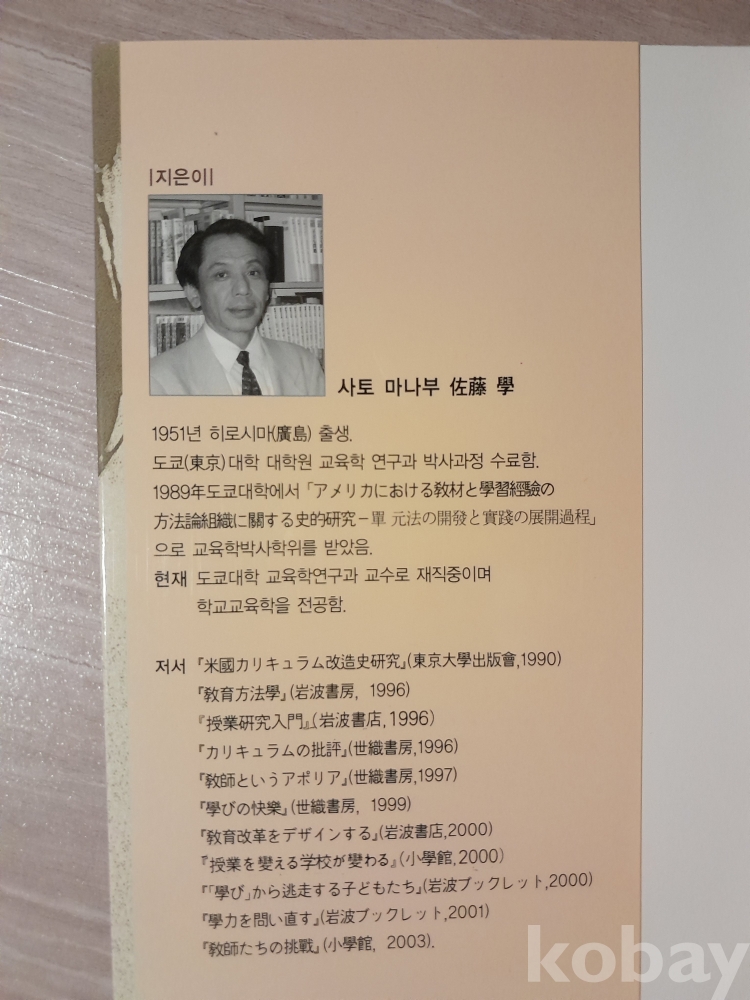 |지은이|
사토 마나부 佐藤 學
1951년 히로시마(廣島) 출생.
도쿄(東京)대학 대학원 교육학 연구과 박사과정 수료함.
1989年도쿄대학에서 「アメリカにおける敎材と學習經驗の
方法論組織に關する史的硏究-單 元法の開發と實踐の展開過程」
으로 교육학박사학위를 받았음.
현재 도쿄대학 교육학연구과 교수로 재직중이며
학교교육학을 전공함.
저서 『米國カリキュラム改造史硏究』(東京大學出版會,1990)
『敎育方法學』(岩波書房, 1996)
『授業硏究入門』(岩波書店,1996)
『カリキュラムの批評』(世織書房,1996)
『敎師というアポリア』(世織書房,1997)
『學びの快樂』(世織書房, 1999)
『敎育改革をデザインする』(岩波書店,2000)
『授業を變える学校が變わる』(小學館,2000)
『「學び」から逃走する子どもたち』(岩波ブックレット,2000)
『學力を問い直す』(岩波ブックレット,2001)
『敎師たちの挑戰』(小學館, 2003).
kobay